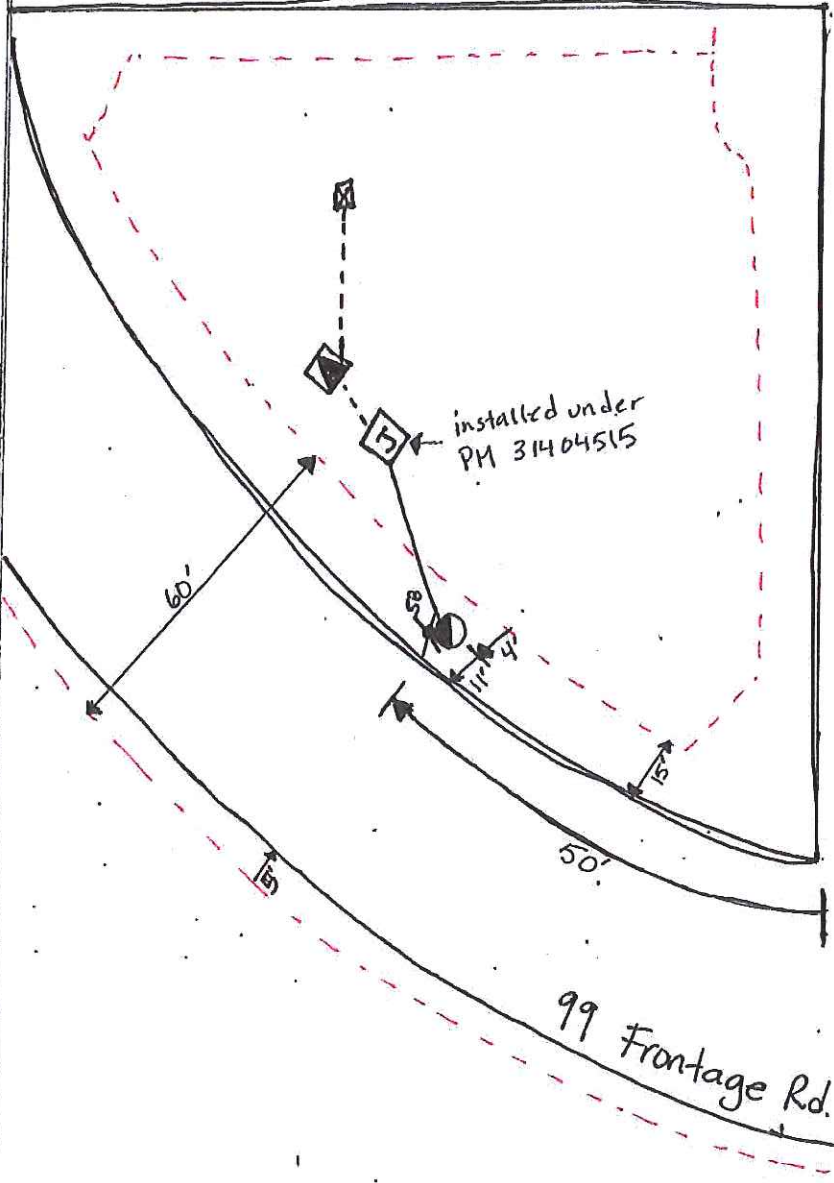 installed under
PM 31404515
60'
4'
11'
15'
50'
99 Frontage Rd.